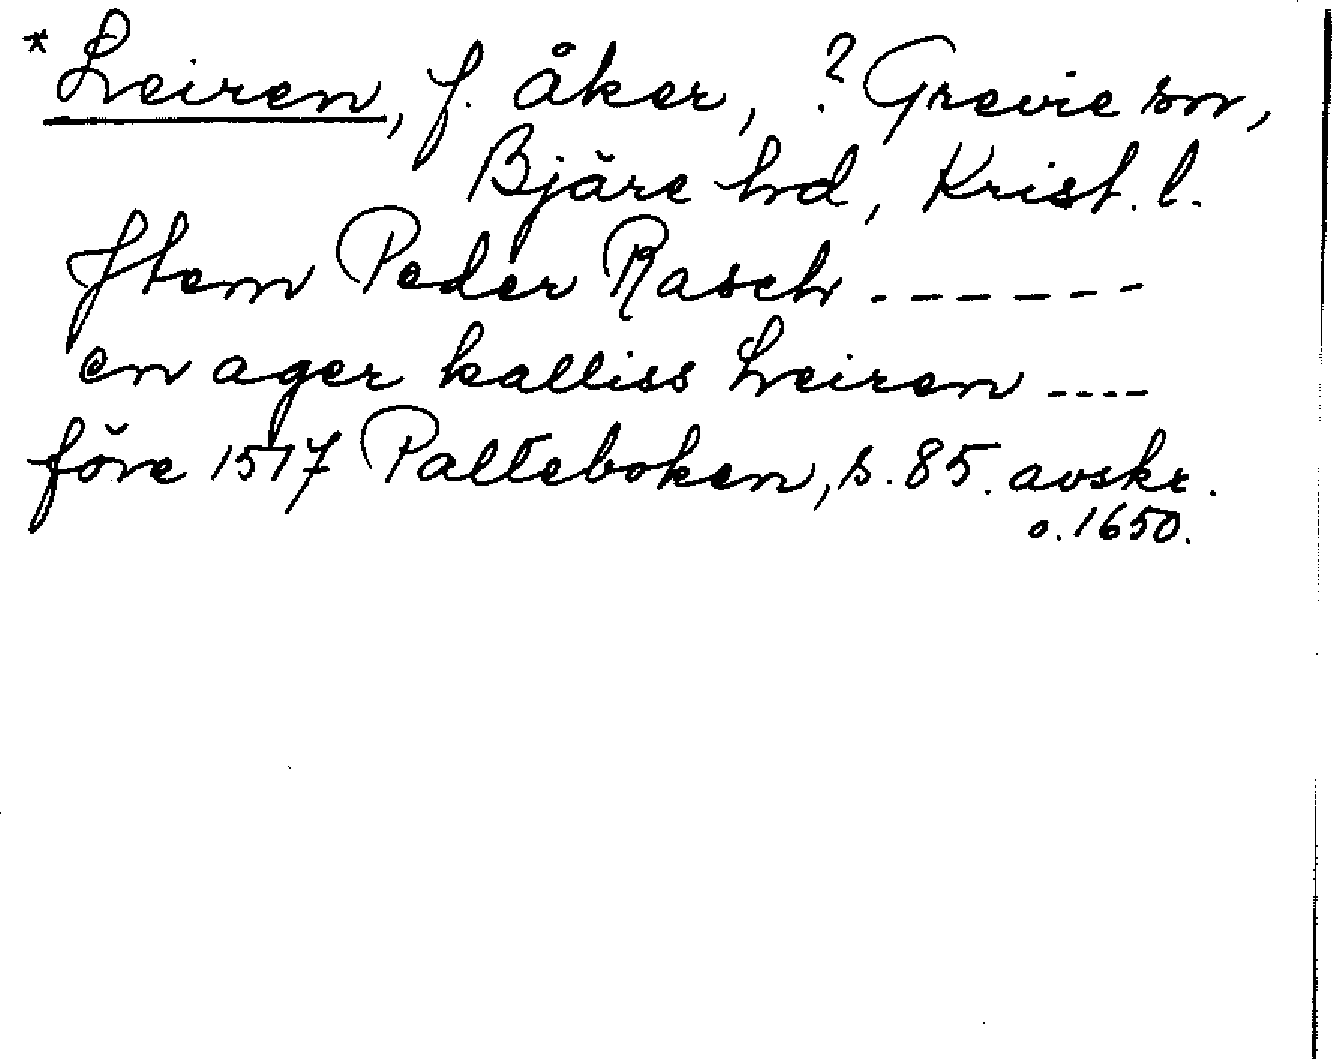 *Leiren, f. åker, ? Grevie sn,
Bjäre hd, Krist. l.
Jtem Peder Rasch ------
en ager kalliss Leiren ----
före 1517 Palteboken, s. 85. avskr.
o. 1650.